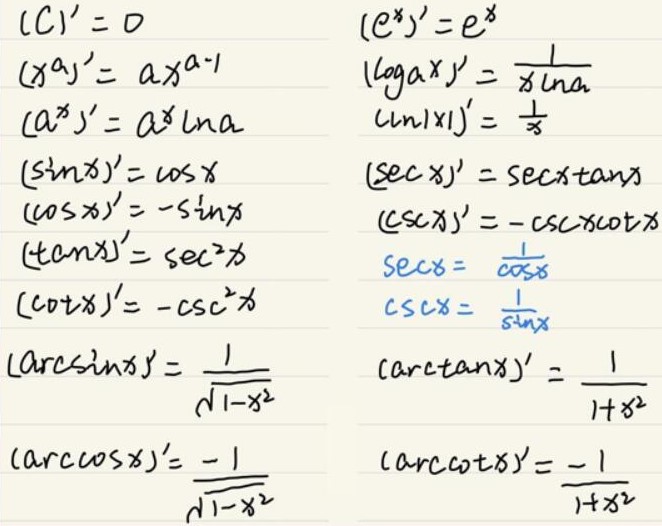 (C)' = 0
(x^a)' = ax^(a-1)
(a^x)' = a^x lna
(sinx)' = cosx
(cosx)' = -sinx
(tanx)' = sec²x
(cotx)' = -csc²x
(arcsinx)' = 1/√(1-x²)
(arccosx)' = -1/√(1-x²)
(e^x)' = e^x
(logₐx)' = 1/(xlna)
(ln|x|)' = 1/x
(secx)' = secxtanx
(cscx)' = -cscxcotx
secx = 1/cosx
cscx = 1/sinx
(arctanx)' = 1/(1+x²)
(arccotx)' = -1/(1+x²)